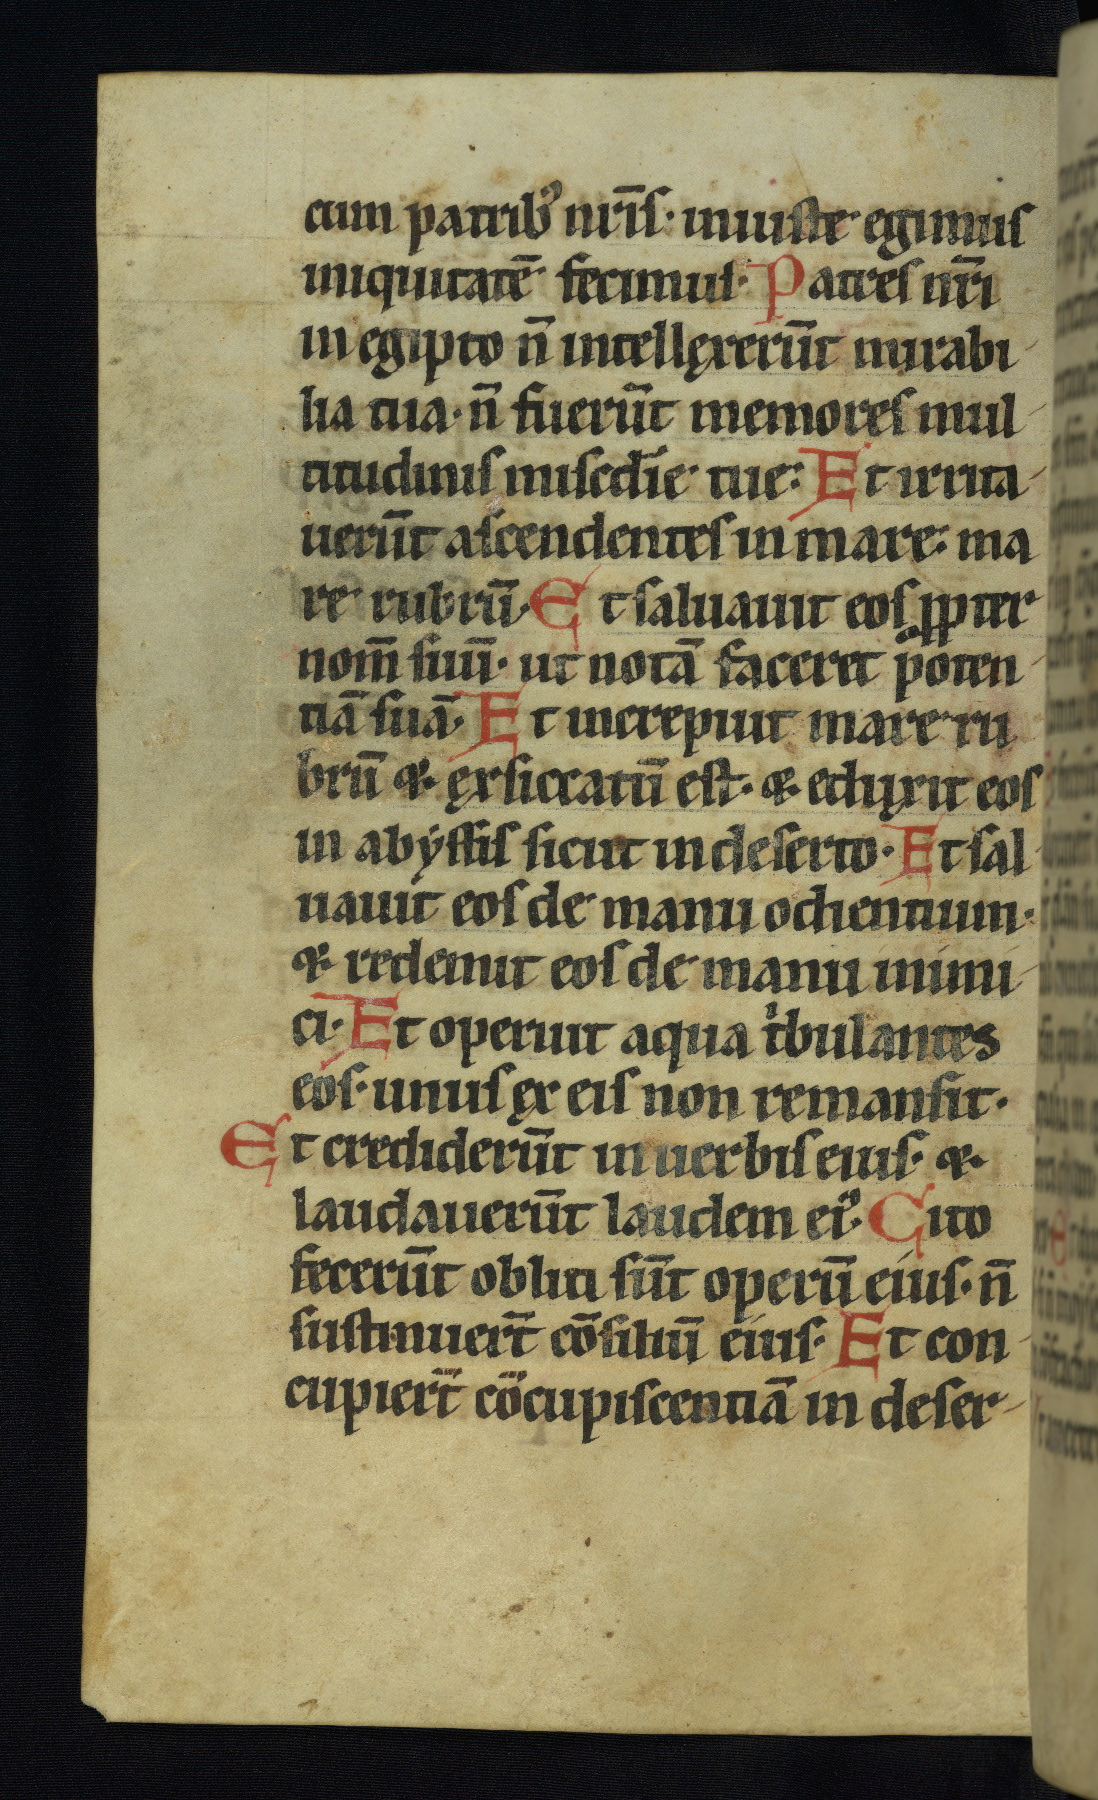 cum patribꝰ nr̄is· iniuste egimus
iniquitatē fecimus· Patres nr̄i
in egipto n̄ intellexerūt mirabi
lia tua· n̄ fuerūt memores mul
titudinis misc̄die tue: Et irrita
uerūt ascendentes in mare: ma
re rubrū· Et saluauit eos ꝓpter
nom̄ suū· ut notā faceret poten
tiā suā· Et increpuit mare ru
brū ⁊· exsiccatū est· ⁊· eduxit eos
in abẏssis sicut in deserto· Et sal
uauit eos de manu odientium·
⁊· redemit eos de manu inimi
ci· Et operuit aqua tͥbulantes
eos· unus ex eis non remansit·
Et crediderūt in uerbis eius· ⁊·
laudauerūt laudem eiꝰ· Cito
fecerūt obliti sūt operū eius· n̄
sustinuert̄ cōsiliū eius· Et con
cupiert̄ cōcupiscentiā in deser